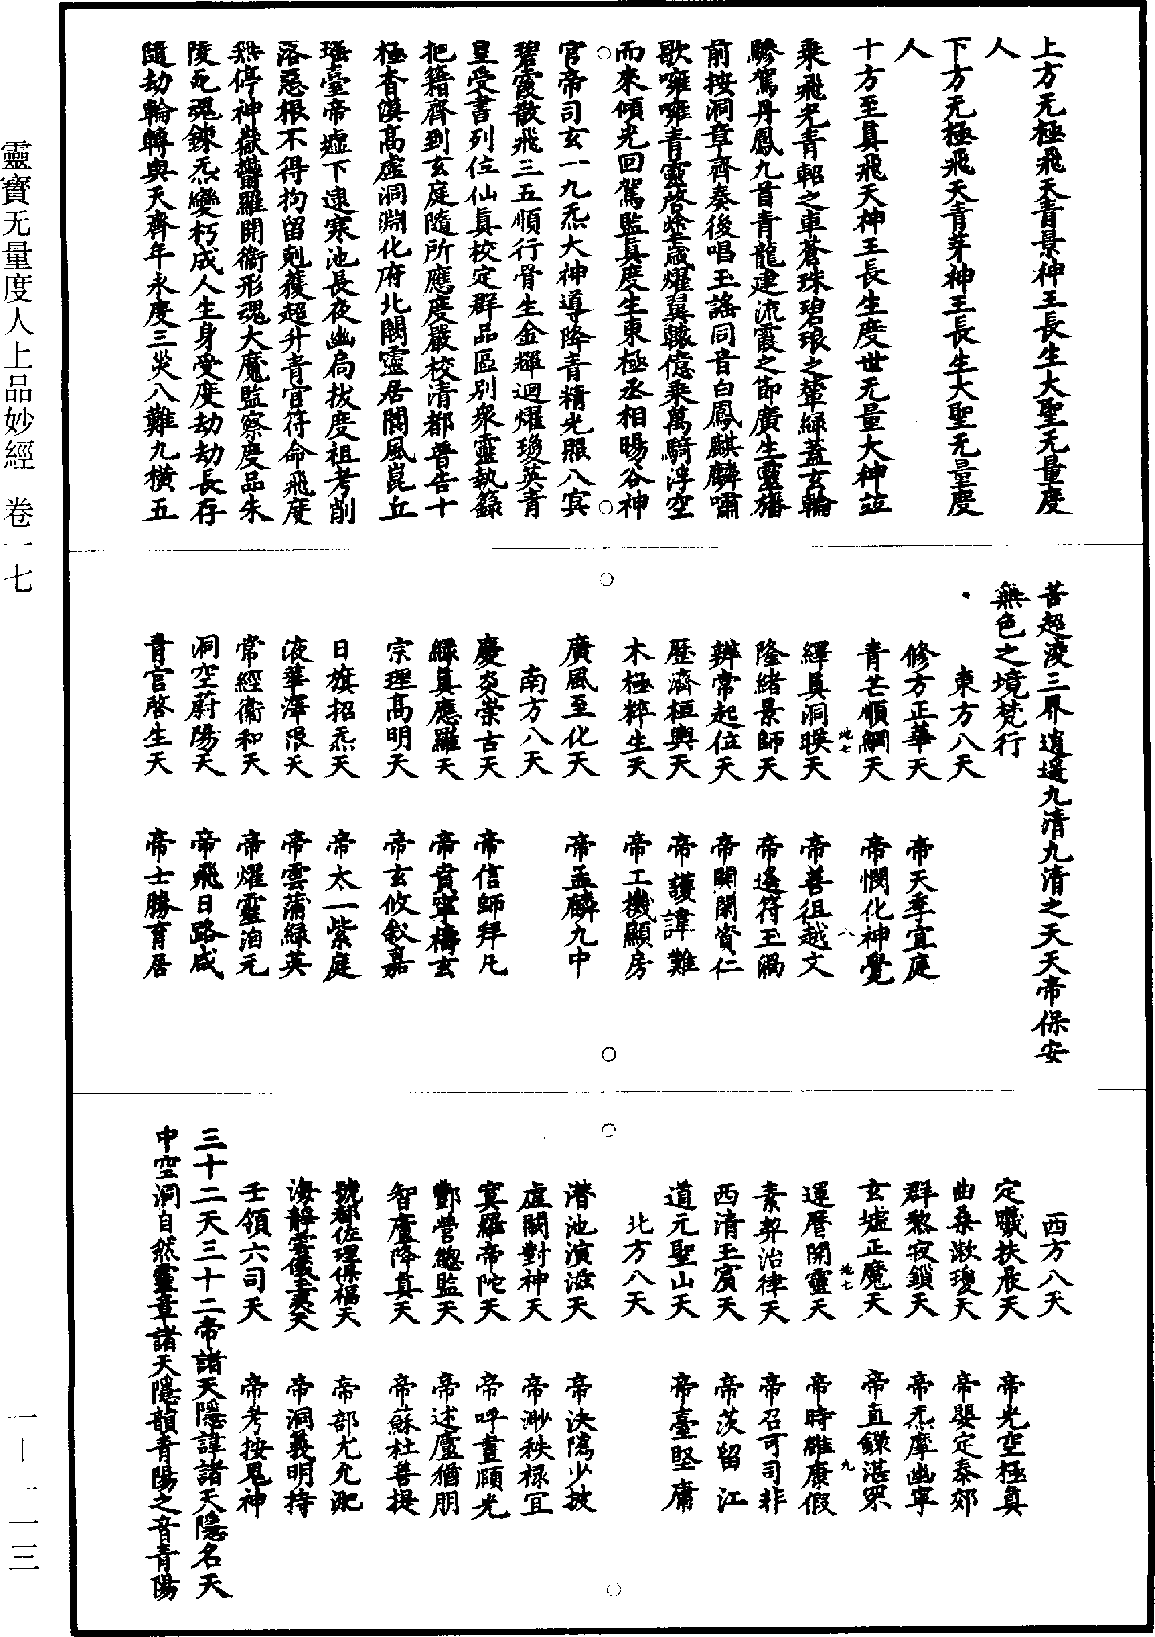 上方无極飛天青景神王長生大聖无量度
人
下方无極飛天青芽神王長生大聖无量度
人
十方至真飛天神王長生度世无量大神竝
乘飛光青軺之車蒼珠碧琅之輦緑蓋玄輪
驂駕丹鳳九首青龍建流霞之節廣生靈旛
前按洞章齊奏後唱玉謠同音白鳳麒麟嘯
歌嗈嗈青靈啓塗歲耀翼轅億乘萬騎浮空
而來傾光回駕監真度生東極丞相暘谷神
官帝司玄一九炁大神導降青精光照八寅
碧霞散飛三五順行骨生金輝迴耀瓊英青
皇受書列位仙真校定群品區別衆靈執錄
把籍齊到玄庭隨所應度嚴校清都普告十
極杳漠高虛洞淵化府北闕靈居閬風崑丘
瑶臺帝墟下逮寒池長夜幽局拔度祖考削
落惡根不得拘留剋獲超升青宫符命飛度
無停神嶽鬱羅開衛形魂大魔監察度品朱
陵死魂鍊炁變朽成人生身受度劫劫長存
隨劫輪轉與天齊年永度三災八難九橫五
苦超淩三界逍遥九清九清之天天帝保安
無色之境梵行
東方八天
修方正華天 帝天季宜庭
青芒順綱天 帝憫化神覺
繹真洞暎天 帝善徂越文
隆緒景師天 帝逢符玉渦
辨常起位天 帝開閑資仁
歷濟桓輿天 帝護諱難
木極粹生天 帝工機顯房
廣風至化天 帝孟麟九中
南方八天
慶炎榮古天 帝信師拜凡
緑真應羅天 帝貴寧檮玄
宗理高明天 帝玄攸敘嘉
日旗招炁天 帝太一紫庭
液華澤限天 帝雲蒲緑英
常經衞和天 帝耀靈洎元
洞空蔚陽天 帝飛日路咸
青官啓生天 帝士勝育居
西方八天
定職扶晨天 帝光空極負
曲桑漱瓊天 帝嬰定泰郊
群黎寂鎖天 帝炁摩幽寧
玄墟正魔天 帝直鎵湛眾
運曆開靈天 帝時雖康假
素契治律天 帝召可司非
西清王賓天 帝茨留江
道元聖山天 帝臺堅庸
北方八天
潛池演滋天 帝決隱少披
虛關對神天 帝渺秩祿宜
寞羅帝陀天 帝呼晝頤光
酆營總監天 帝述廬猶朋
智廬降真天 帝蘇杜菩提
號都佐理保福天 帝部尤允溉
海靜雲儀玉真天 帝洞義明持
壬領六司天 帝考按鬼神
三十二天三十二帝諸天隱諱諸天隱名天
中空洞自然靈章諸天隱韻青陽之音青陽
靈寶无量度人上品妙經 卷一七
一—二一三